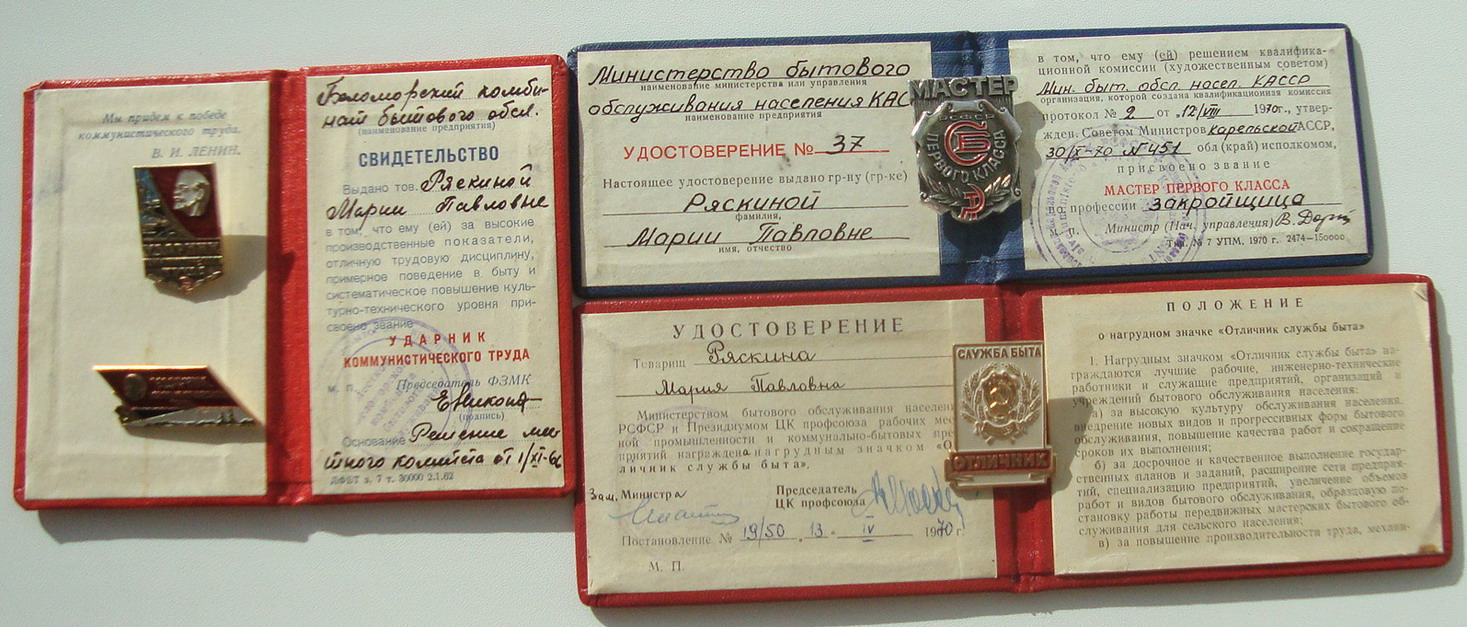 Мы придем к победе
коммунистического труда.
В. И. ЛЕНИН.
УДАРНИК
Беломорский комби-
нат бытового обсл.
(наименование предприятия)
СВИДЕТЕЛЬСТВО
Выдано тов. Ряскиной
Марии Павловне
в том, что ему (ей) за высокие
производственные показатели,
отличную трудовую дисциплину,
примерное поведение в быту и
систематическое повышение куль-
турно-технического уровня при-
своено звание
УДАРНИК
КОММУНИСТИЧЕСКОГО ТРУДА
М. П. Председатель ФЗМК
(подпись)
Основание Решение ме-
стного комитета от 1/XI-66
ЛФБТ з. 7 т. 30000 2.1.62
Министерство бытового
наименование министерства или управления
обслуживания населения КАС
наименование предприятия
УДОСТОВЕРЕНИЕ № 37
Настоящее удостоверение выдано гр-ну (гр-ке)
Ряскиной
фамилия,
Марии Павловне
имя, отчество
МАСТЕР
РСФСР
СБ
ПЕРВОГО КЛАССА
в том, что ему (ей) решением квалифика-
ционной комиссии (художественным советом)
Мин. быт. обсл. насел. КАССР
организация, которой создана квалификационная комиссия
протокол № 2 от 12/VIII 1970г., утвер-
жден. Советом Министров Карельской АССР,
30/IX-70 №451 обл (край) исполкомом,
присвоено звание
МАСТЕР ПЕРВОГО КЛАССА
по профессии закройщица
М. П. Министр (Нач. управления)
Тип. № 7 УПМ. 1970 г. 2474—150000
УДОСТОВЕРЕНИЕ
Товарищ Ряскина
Мария Павловна
Министерством бытового обслуживания населен
РСФСР и Президиумом ЦК профсоюза рабочих мес
ной промышленности и коммунально-бытовых пре
приятий награждена нагрудным значком «О
личник службы быта».
Зам. Министра Председатель
ЦК профсоюза
Постановление № 19/50 . 13 . IV 1970 г.
М. П.
СЛУЖБА БЫТА
ОТЛИЧНИК
ПОЛОЖЕНИЕ
о нагрудном значке «Отличник службы быта»
1. Нагрудным значком «Отличник службы быта» на-
граждаются лучшие рабочие, инженерно-технические
работники и служащие предприятий, организаций и
учреждений бытового обслуживания населения:
а) за высокую культуру обслуживания населения,
внедрение новых видов и прогрессивных форм бытового
обслуживания, повышение качества работ и сокращение
сроков их выполнения;
б) за досрочное и качественное выполнение государ-
ственных планов и заданий, расширение сети предприя-
тий, специализацию предприятий, увеличение объемов
работ и видов бытового обслуживания, образцовую по-
становку работы передвижных мастерских бытового об-
служивания для сельского населения;
в) за повышение производительности труда, механи-